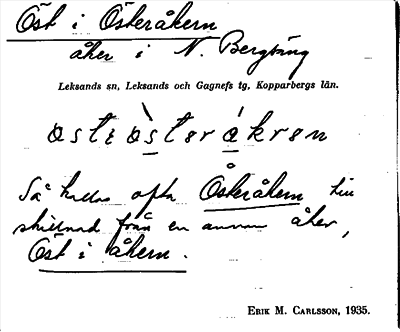 Öst i Österåkern
åker i N. Bergsäng
Leksands sn, Leksands och Gagnefs tg, Kopparbergs län.
ostiòsterákren
Så kallas ofta Österåkern till
skillnad från en annan åker,
Öst i åkern.
ERIK M. CARLSSON, 1935.